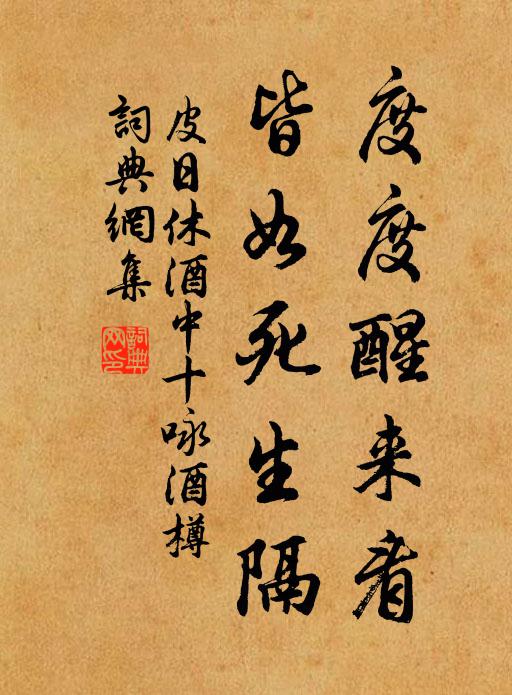 度度醒来看
皆如死生隔
皮日休酒中十咏酒樽
詞典網集
詞典网印